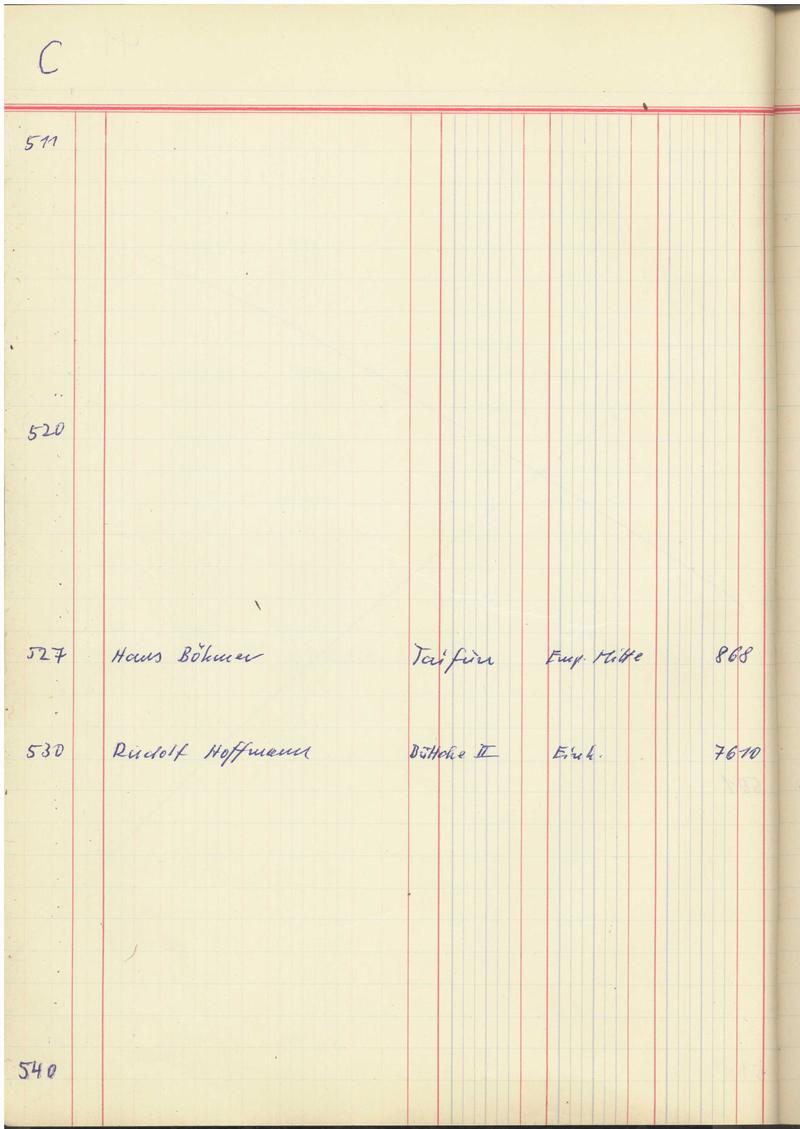 C
511
520
527 Hans Böhmer Taifun Emp. Mitte 868
530 Rudolf Hoffmann II Eink. 7610
540